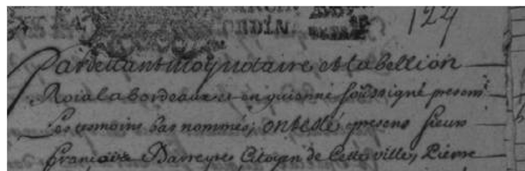 124
Pardevant moy notaire et tabellion
Roial a bordeaux et en guienne soussigné presens
Les temoins bas nommés, ont esté presens sieurs
François Barreyre Citoyen de cette ville, Pierre